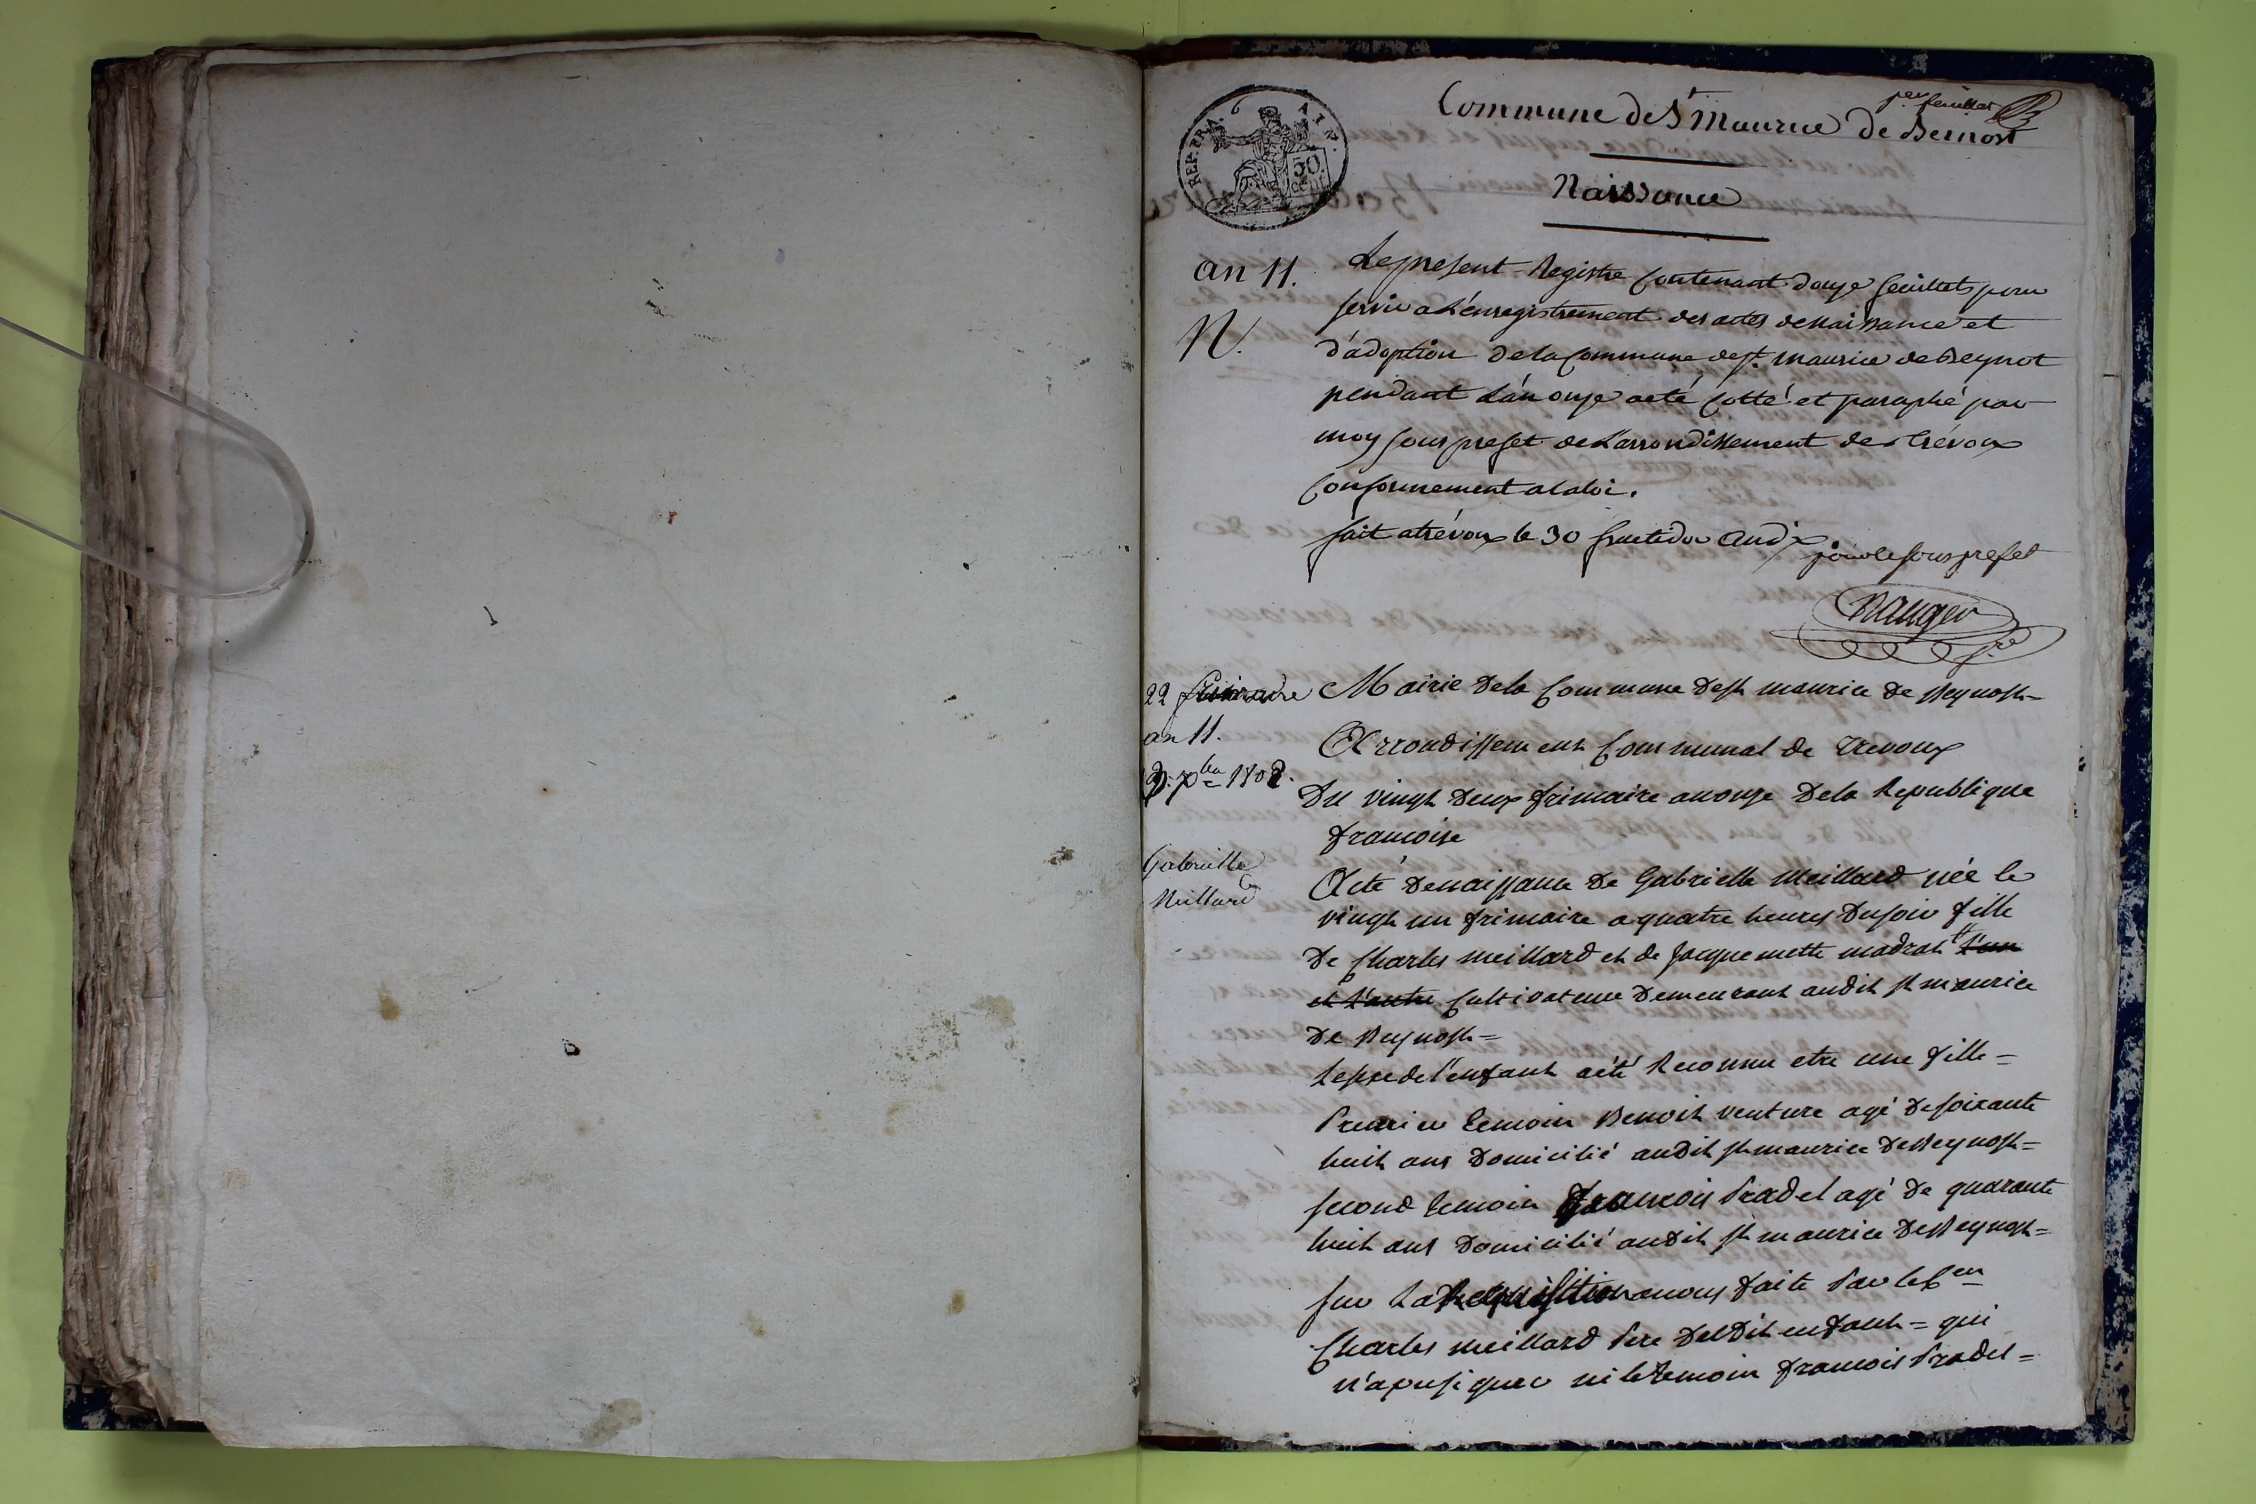 1er feuillet
Commune de St Maurice de Beinost
REP. FRA. 6 AIN.
50 CENT.
Naissance
an 11.
N.
Le present Registre Contenant douze feuillets pour
servir a L'enregistrement des actes de Naissance et
d'adoption de la Commune de St. Maurice de Beynot
pendant L'an onze a eté Cotté et paraphé par
moy sous prefet de L'arrondissement de Trévoux
Conformement a la loi.
fait a trévoux le 30 fructidor an dix
pour le sous prefet
22 frimaire
an 11.
Xbre 1802.
Gabrielle
Meillard
Mairie de la Commune de St maurice de Beynost =
Arrondissement Communal de Trevoux
Du vingt Deux frimaire an onze De la Republique
francoise
Acte De naissance De Gabrielle Meillard née le
vingt un frimaire a quatre heures Du soir fille
De Charles Meillard et de Jacquemette madrat l'un
et l'autre Cultivateur Demeurant audit St maurice
De Beynost =
Le sexe de l'enfant a été Reconnu etre une fille =
Premier temoin Benoit venture agé De soixante
huit ans Domicilié audit St maurice De Beynost =
second temoin francois Pradel agé De quarante
huit ans Domicilié audit St maurice De Beynost =
sur La Requisition a nous faite Par le Cen
Charles Meillard Pere Deldit enfant = qui
n'a pu signer ni le temoin francois Pradel =